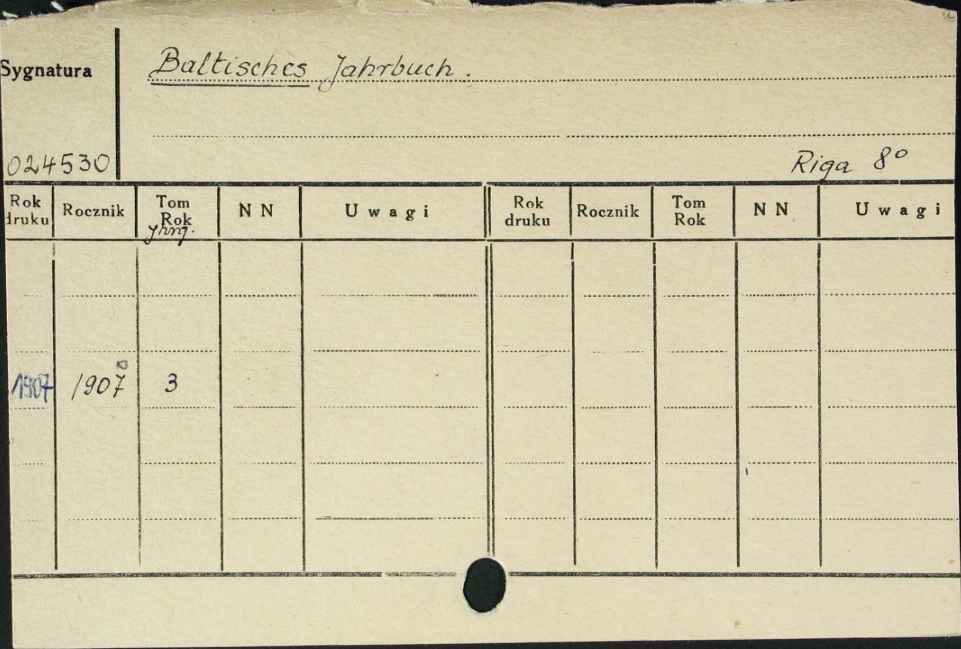 Sygnatura
Baltisches Jahrbuch.
024530
Riga 8°
Rok druku Rocznik Tom Rok NN Uwagi Rok druku Rocznik Tom Rok NN Uwagi
Jhrg.
1907 1907 3